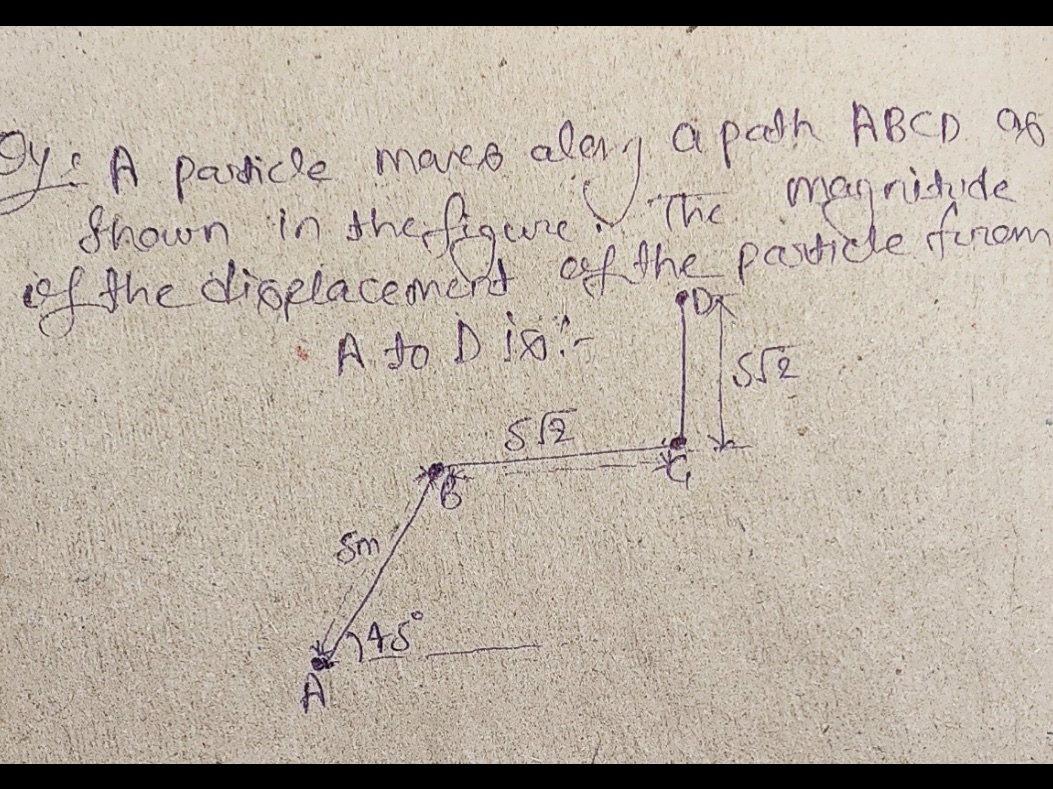 Qy: A particle moves along a path ABCD as
shown in the figure. The magnitude
of the displacement of the particle from
A to D is:-
D
5√2
5√2
B
C
5m
45°
A